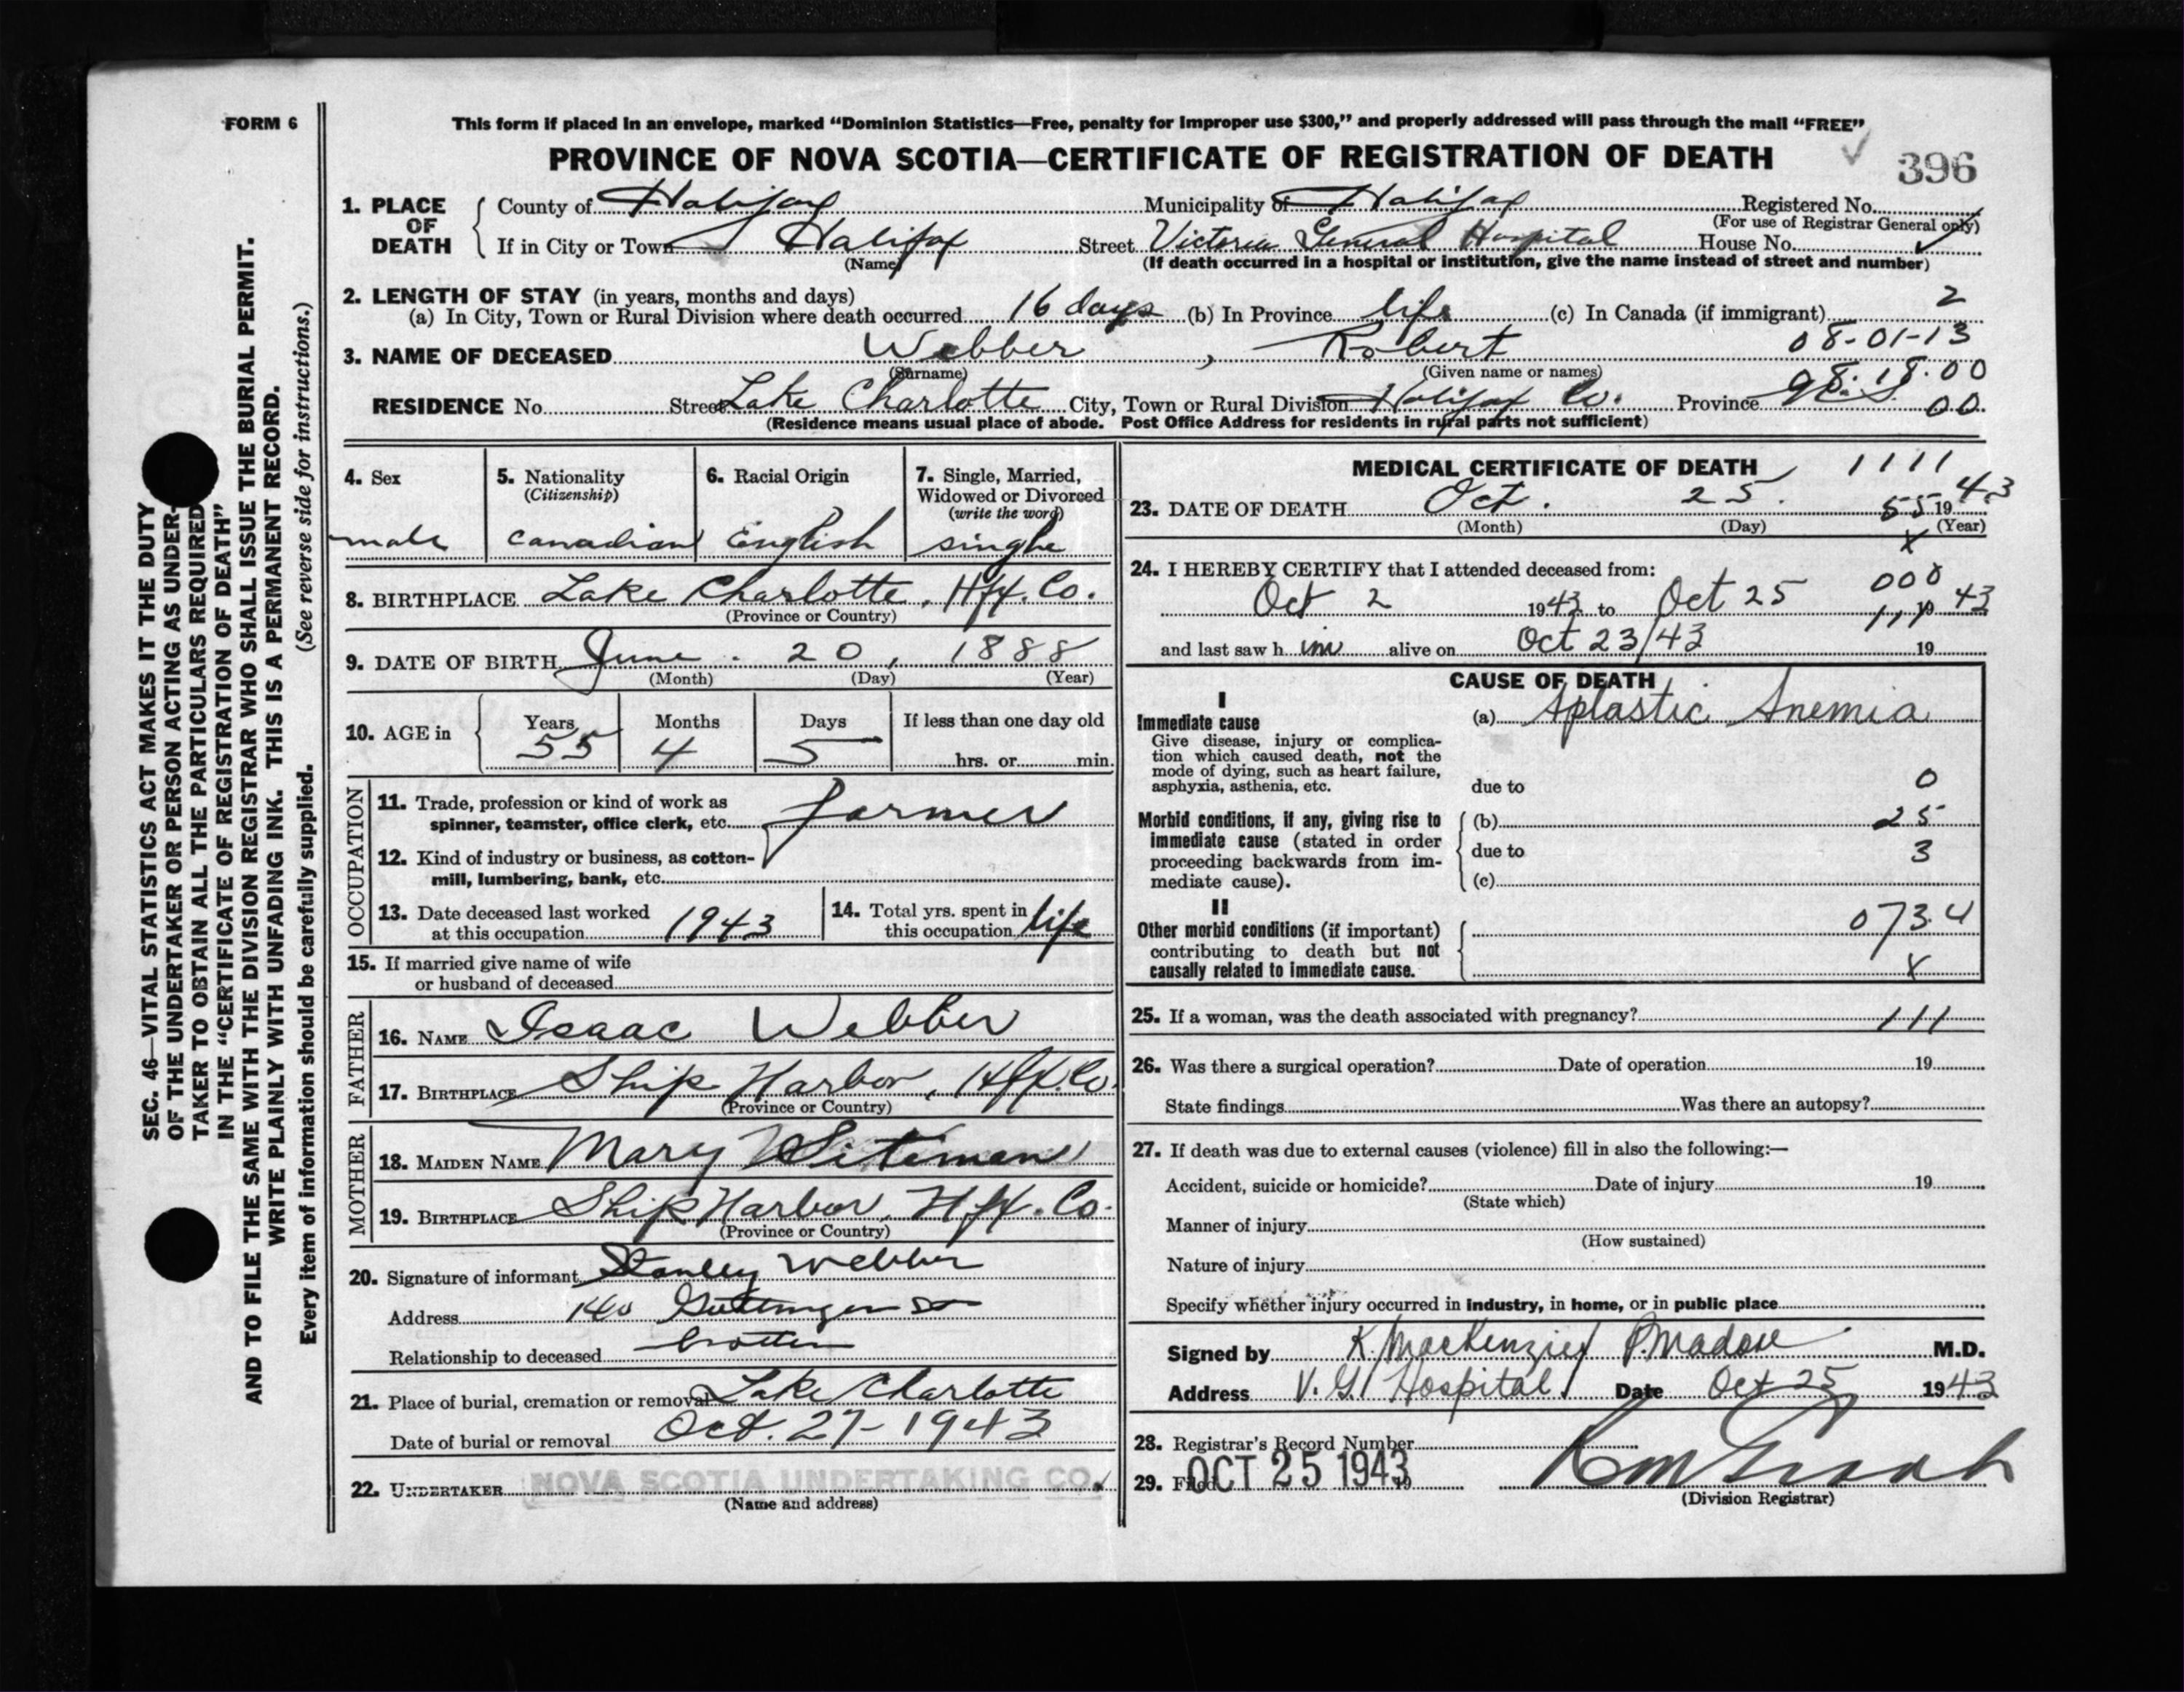 FORM 6
This form if placed in an envelope, marked "Dominion Statistics—Free, penalty for improper use $300," and properly addressed will pass through the mail "FREE"
PROVINCE OF NOVA SCOTIA—CERTIFICATE OF REGISTRATION OF DEATH
396
1. PLACE OF DEATH
County of Halifax Municipality of Halifax Registered No.
(For use of Registrar General only)
If in City or Town Halifax Street Victoria General Hospital House No.
(Name) (If death occurred in a hospital or institution, give the name instead of street and number)
2. LENGTH OF STAY (in years, months and days)
(a) In City, Town or Rural Division where death occurred 16 days (b) In Province life (c) In Canada (if immigrant) 2
08-01-13
3. NAME OF DECEASED Webber, Robert
(Surname) (Given name or names)
08.18.00
RESIDENCE No. Street Lake Charlotte City, Town or Rural Division Halifax Co. Province N.S. 00
(Residence means usual place of abode. Post Office Address for residents in rural parts not sufficient)
4. Sex
male
5. Nationality
(Citizenship)
Canadian
6. Racial Origin
English
7. Single, Married,
Widowed or Divorced
(write the word)
single
8. BIRTHPLACE Lake Charlotte, Hfx. Co.
(Province or Country)
9. DATE OF BIRTH June 20, 1888
(Month) (Day) (Year)
10. AGE in
Years Months Days If less than one day old
55 4 5 hrs. or min.
OCCUPATION
11. Trade, profession or kind of work as
spinner, teamster, office clerk, etc. farmer
12. Kind of industry or business, as cotton-
mill, lumbering, bank, etc.
13. Date deceased last worked
at this occupation 1943
14. Total yrs. spent in
this occupation life
15. If married give name of wife
or husband of deceased
FATHER
16. NAME Isaac Webber
17. BIRTHPLACE Ship Harbor, Hfx. Co.
(Province or Country)
MOTHER
18. MAIDEN NAME Mary
19. BIRTHPLACE Ship Harbor, Hfx. Co.
(Province or Country)
20. Signature of informant Stanley Webber
Address 140 Gottingen St
Relationship to deceased brother
21. Place of burial, cremation or removal Lake Charlotte
Date of burial or removal Oct. 27-1943
22. UNDERTAKER NOVA SCOTIA UNDERTAKING CO.
(Name and address)
MEDICAL CERTIFICATE OF DEATH
1111
23. DATE OF DEATH Oct. 25. 55 1943
(Month) (Day) (Year)
x
24. I HEREBY CERTIFY that I attended deceased from:
000
Oct 2 1943 to Oct 25 1943
111
and last saw h im alive on Oct 23/43 19
CAUSE OF DEATH
I
Immediate cause
Give disease, injury or complica-
tion which caused death, not the
mode of dying, such as heart failure,
asphyxia, asthenia, etc.
(a) Aplastic Anemia
due to 0
Morbid conditions, if any, giving rise to
immediate cause (stated in order
proceeding backwards from im-
mediate cause).
(b) 25
due to 3
(c)
II
Other morbid conditions (if important)
contributing to death but not
causally related to immediate cause.
073.4
x
25. If a woman, was the death associated with pregnancy? 111
26. Was there a surgical operation? Date of operation 19
State findings Was there an autopsy?
27. If death was due to external causes (violence) fill in also the following:—
Accident, suicide or homicide? Date of injury 19
(State which)
Manner of injury
(How sustained)
Nature of injury
Specify whether injury occurred in industry, in home, or in public place
Signed by K MacKenzie M.D.
Address V.G. Hospital Date Oct 25 1943
28. Registrar's Record Number
29. Filed OCT 25 1943
(Division Registrar)
SEC. 46—VITAL STATISTICS ACT MAKES IT THE DUTY
OF THE UNDERTAKER OR PERSON ACTING AS UNDER-
TAKER TO OBTAIN ALL THE PARTICULARS REQUIRED
IN THE "CERTIFICATE OF REGISTRATION OF DEATH"
AND TO FILE THE SAME WITH THE DIVISION REGISTRAR WHO SHALL ISSUE THE BURIAL PERMIT.
WRITE PLAINLY WITH UNFADING INK. THIS IS A PERMANENT RECORD.
Every item of information should be carefully supplied. (See reverse side for instructions.)